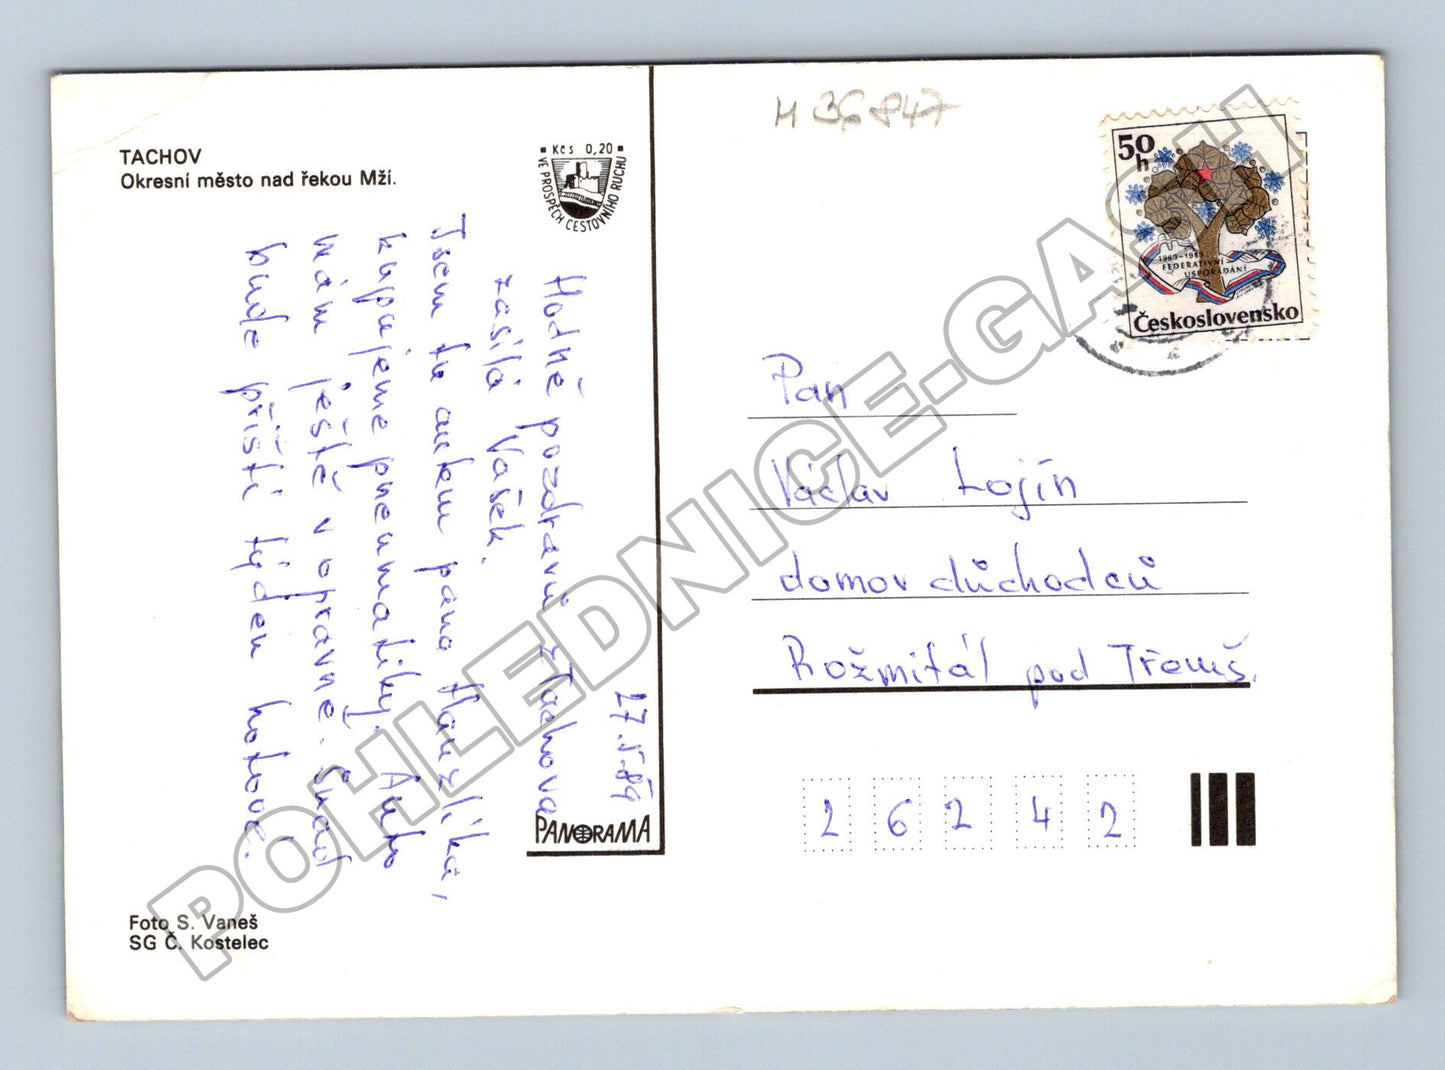 TACHOV
Okresní město nad řekou Mží.
Kčs 0,20
VE PROSPĚCH CESTOVNÍHO RUCHU
27.5.89
Hodně pozdravů z Tachova
zasílá Vašek.
Jsem tu autem pana Hanzlíka,
kupujeme pneumatiky. Auto
mám ještě v opravně. Snad
bude příští týden hotové.
PANORAMA
Foto S. Vaneš
SG Č. Kostelec
H 36 847
50 h
1969-1989
FEDERATIVNÍ
USPOŘÁDÁNÍ
Československo
Pan
Václav Lojín
domov důchodců
Rožmitál pod Třemš.
2 6 2 4 2
POHLEDNICE-GASH